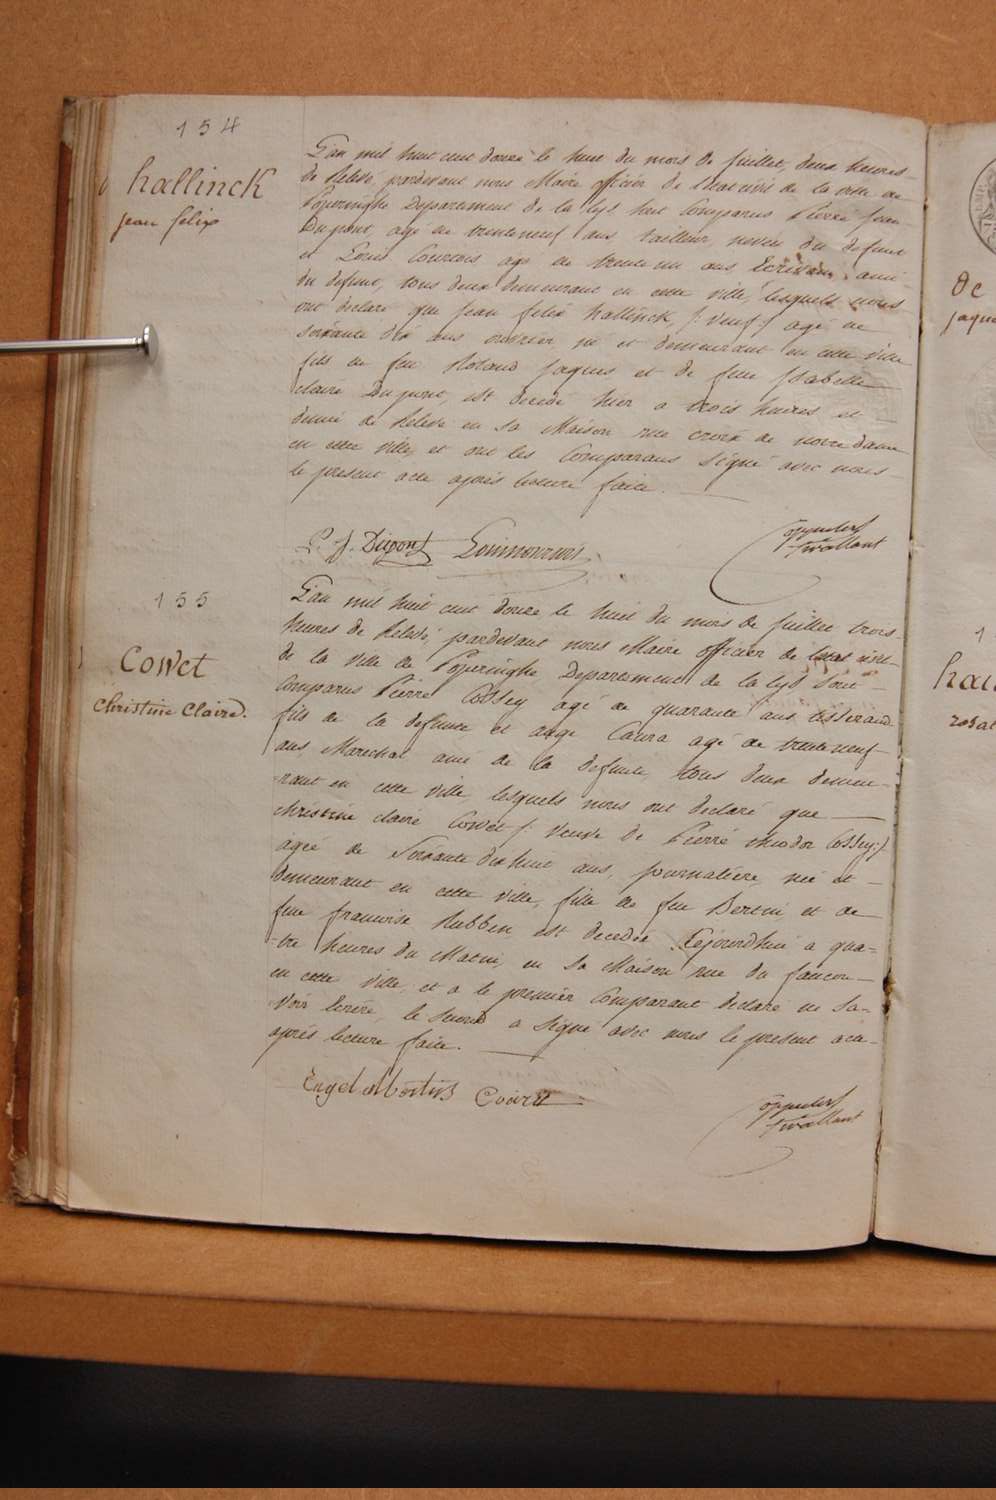 154
hallinck
jean felix
L'an mil huit cent douze le huit du mois de juillet, deux heures
de Relevé, pardevant nous Maire officier de l'Etat civil de la ville de
Poperinghe Departement de la Lys sont Comparus Pierre jean
Dupont, agé de trenteneuf ans tailleur, neveu du defunt
et Louis Courtois agé de trente un ans Ecrivain, ami
du defunt, tous deux demeurant en cette ville, lesquels nous
ont declaré que jean felix hallinck /: veuf :/ agé de
soixante dix ans ouvrier né et demeurant en cette ville
fils de feu Roland jaques et de feue jsabelle
claire Dupont, est decedé hier a trois heures et
demie de Relevé en sa Maison rue croix de notre dame
en cette ville, et ont les Comparans signé avec nous
le present acte après lecture faite.
P. J. Dupont
155
Cowet
Christine Claire.
L'an mil huit cent douze, le huit du mois de juillet trois
heures de Relevé, pardevant nous Maire officier de l'etat civil
de la ville de Poperinghe Departement de la Lys sont
Comparus Pierre Cossey agé de quarante ans tisserand
fils de la defunte et ange Caura agé de trenteneuf
ans, Marechal ami de la defunte, tous deux demeu-
rant en cette ville, lesquels nous ont declaré que
christine claire Cowet /: veuve de Pierre theodor Cossey :/
agée de Soixante dix huit ans, journalière, née et
demeurant en cette ville, fille de feu Bertin et de
feue francoise Rubben est decedée Cejourdhui a qua-
tre heures du Matin, en sa Maison rue du faucon
en cette ville, et a le premier Comparant declaré ne sa-
voir écrire, le second a signé avec nous le present acte
après lecture faite.
de
jaque
1
hal
rosal